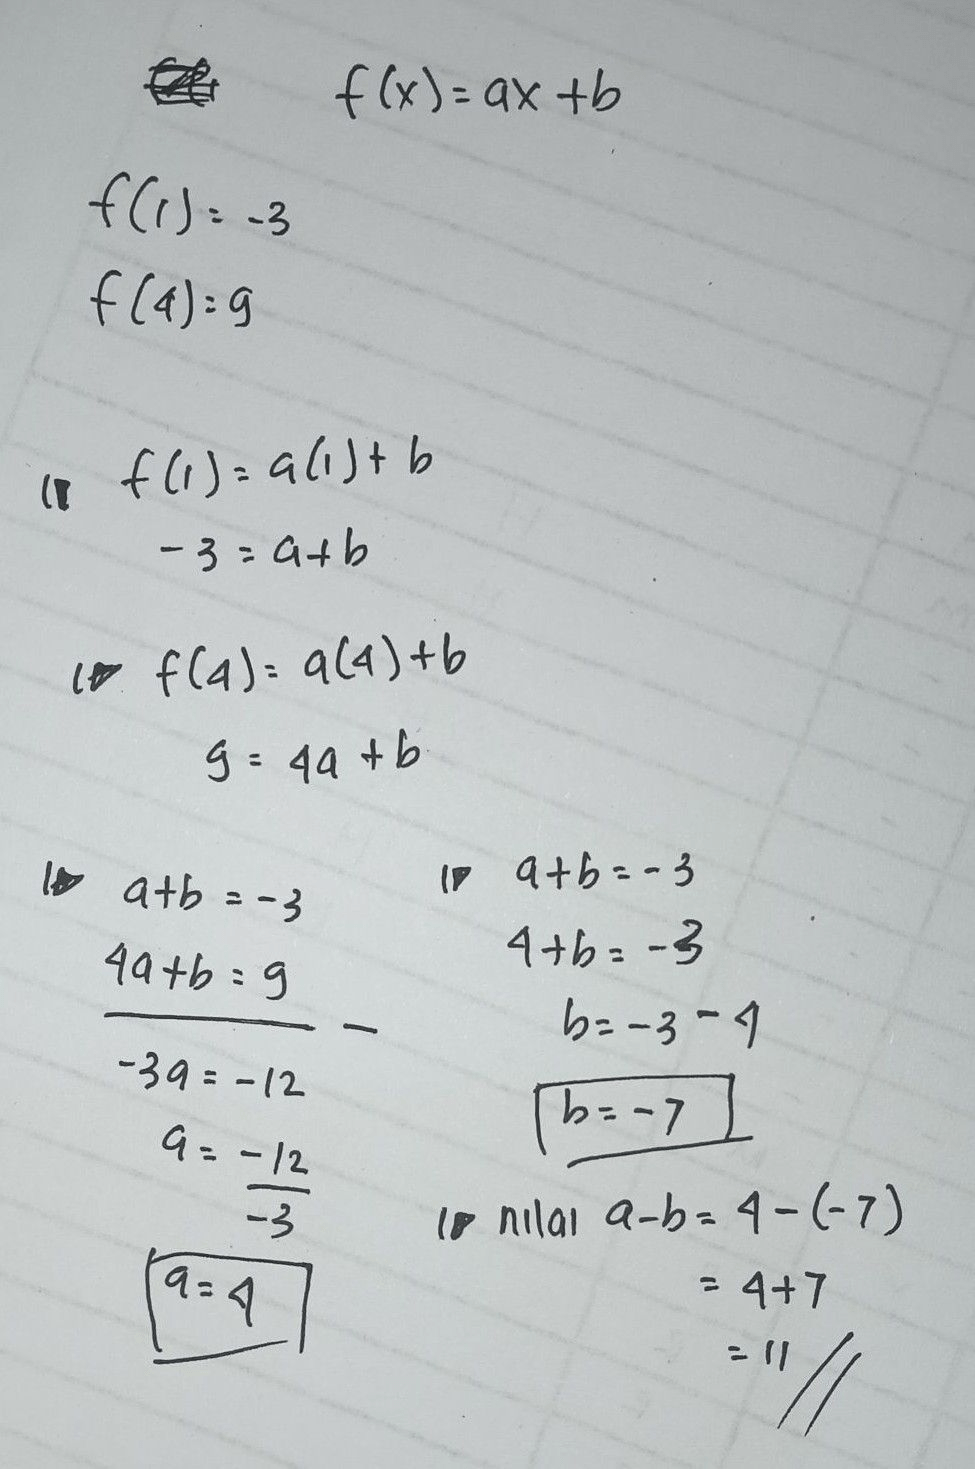 f(x) = ax + b
f(1) = -3
f(4) = 9
f(1) = a(1) + b
-3 = a + b
f(4) = a(4) + b
9 = 4a + b
a + b = -3
4a + b = 9
-
-3a = -12
a = -12
-3
a = 4
a + b = -3
4 + b = -3
b = -3 - 4
b = -7
nilai a - b = 4 - (-7)
= 4 + 7
= 11